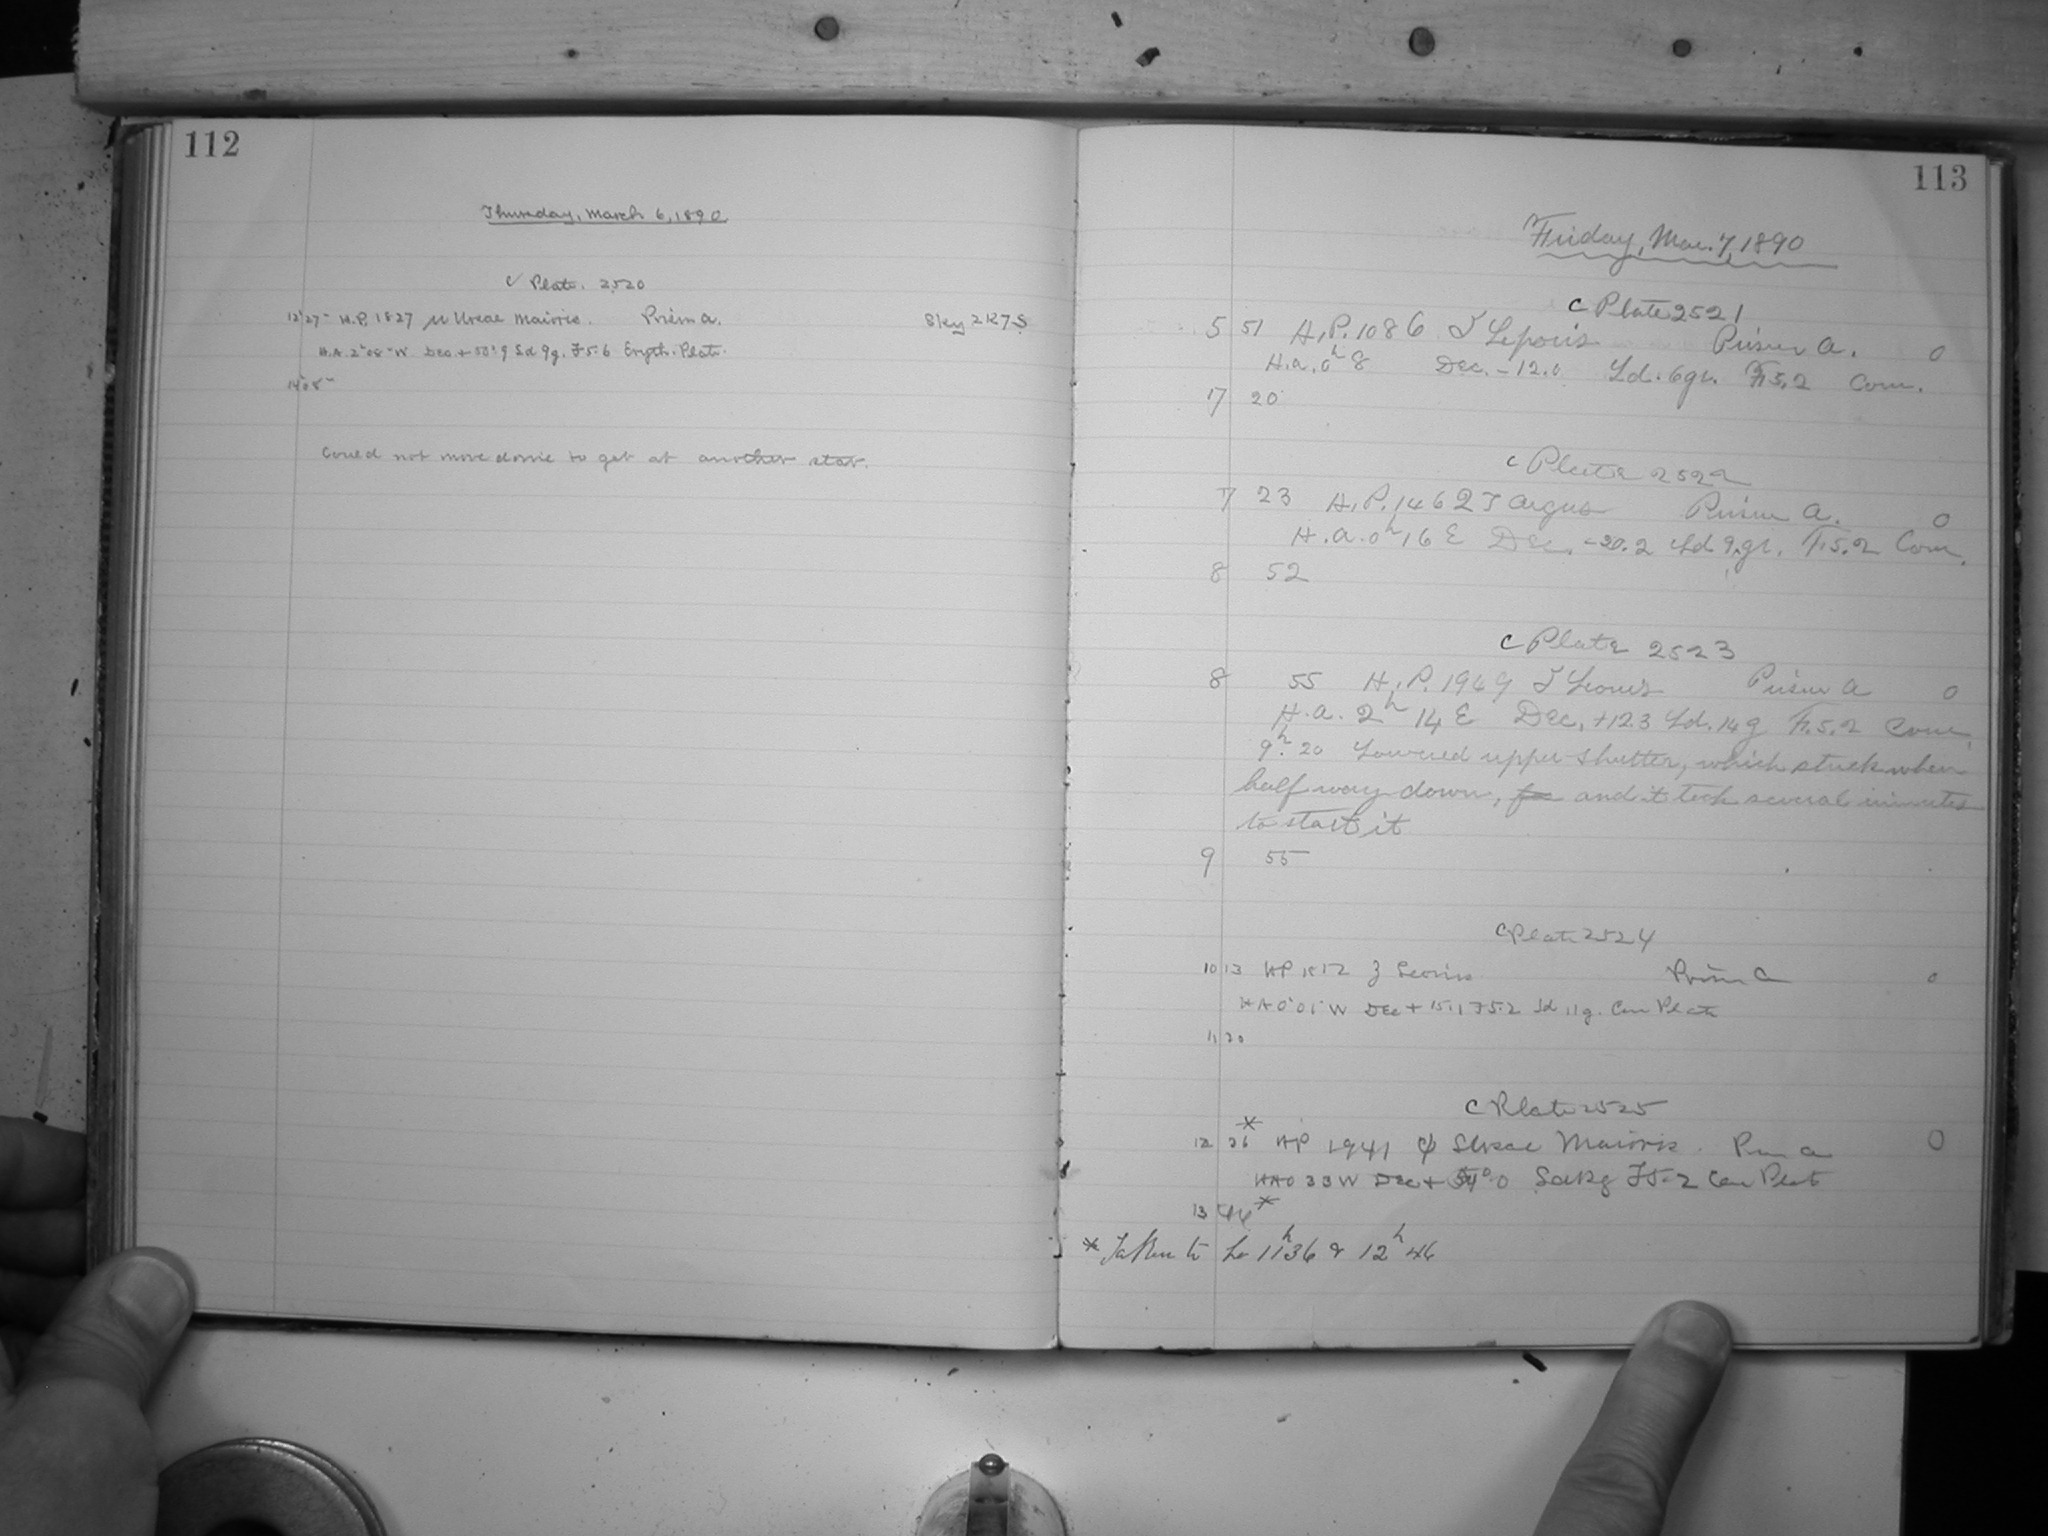 112
Thursday, March 6, 1890
C Plate 2520
12h27m H.P. 1827 μ Ursae Maioris. Prism a. Sky 2K7S
H.A. 2h08m W Dec + 55.9 Sd 9g. F5.6 Eryth. Plate.
14h05m
Could not move dome to get at another star.
113
Friday, Mar. 7, 1890
C Plate 2521
5 51 H.P. 1086 Leporis Prism a. 0
H.a. 0h 8 Dec. -12.0 Sd. 6gr. F5.2 Com.
7 20
C Plate 2522
7 23 H.P. 1462 Argus Prism a. 0
H.a. 0h 16 E Dec. -20.2 Sd 9.gr. F.5.2 Com.
8 52
C Plate 2523
8 55 H.P. 1949 Leonis Prism a 0
H.a. 2h 14 E Dec. +12.3 Sd. 14g F.5.2 Com.
9h. 20 Lowered upper shutter, which stuck when
half way down, and it took several minutes
to start it
9 55
C Plate 2524
10 13 HP Leonis Prism a 0
HA 0h 01m W Dec + 15.1 F5.2 Sd 11g. Com Plate
11 20
C Plate 2525
12 26* HP 1941 ψ Ursae Maioris. Prism a 0
HA 0 33 W Dec + F5.2 Com Plate
13 44*
* Taken to be 11h36 & 12h46